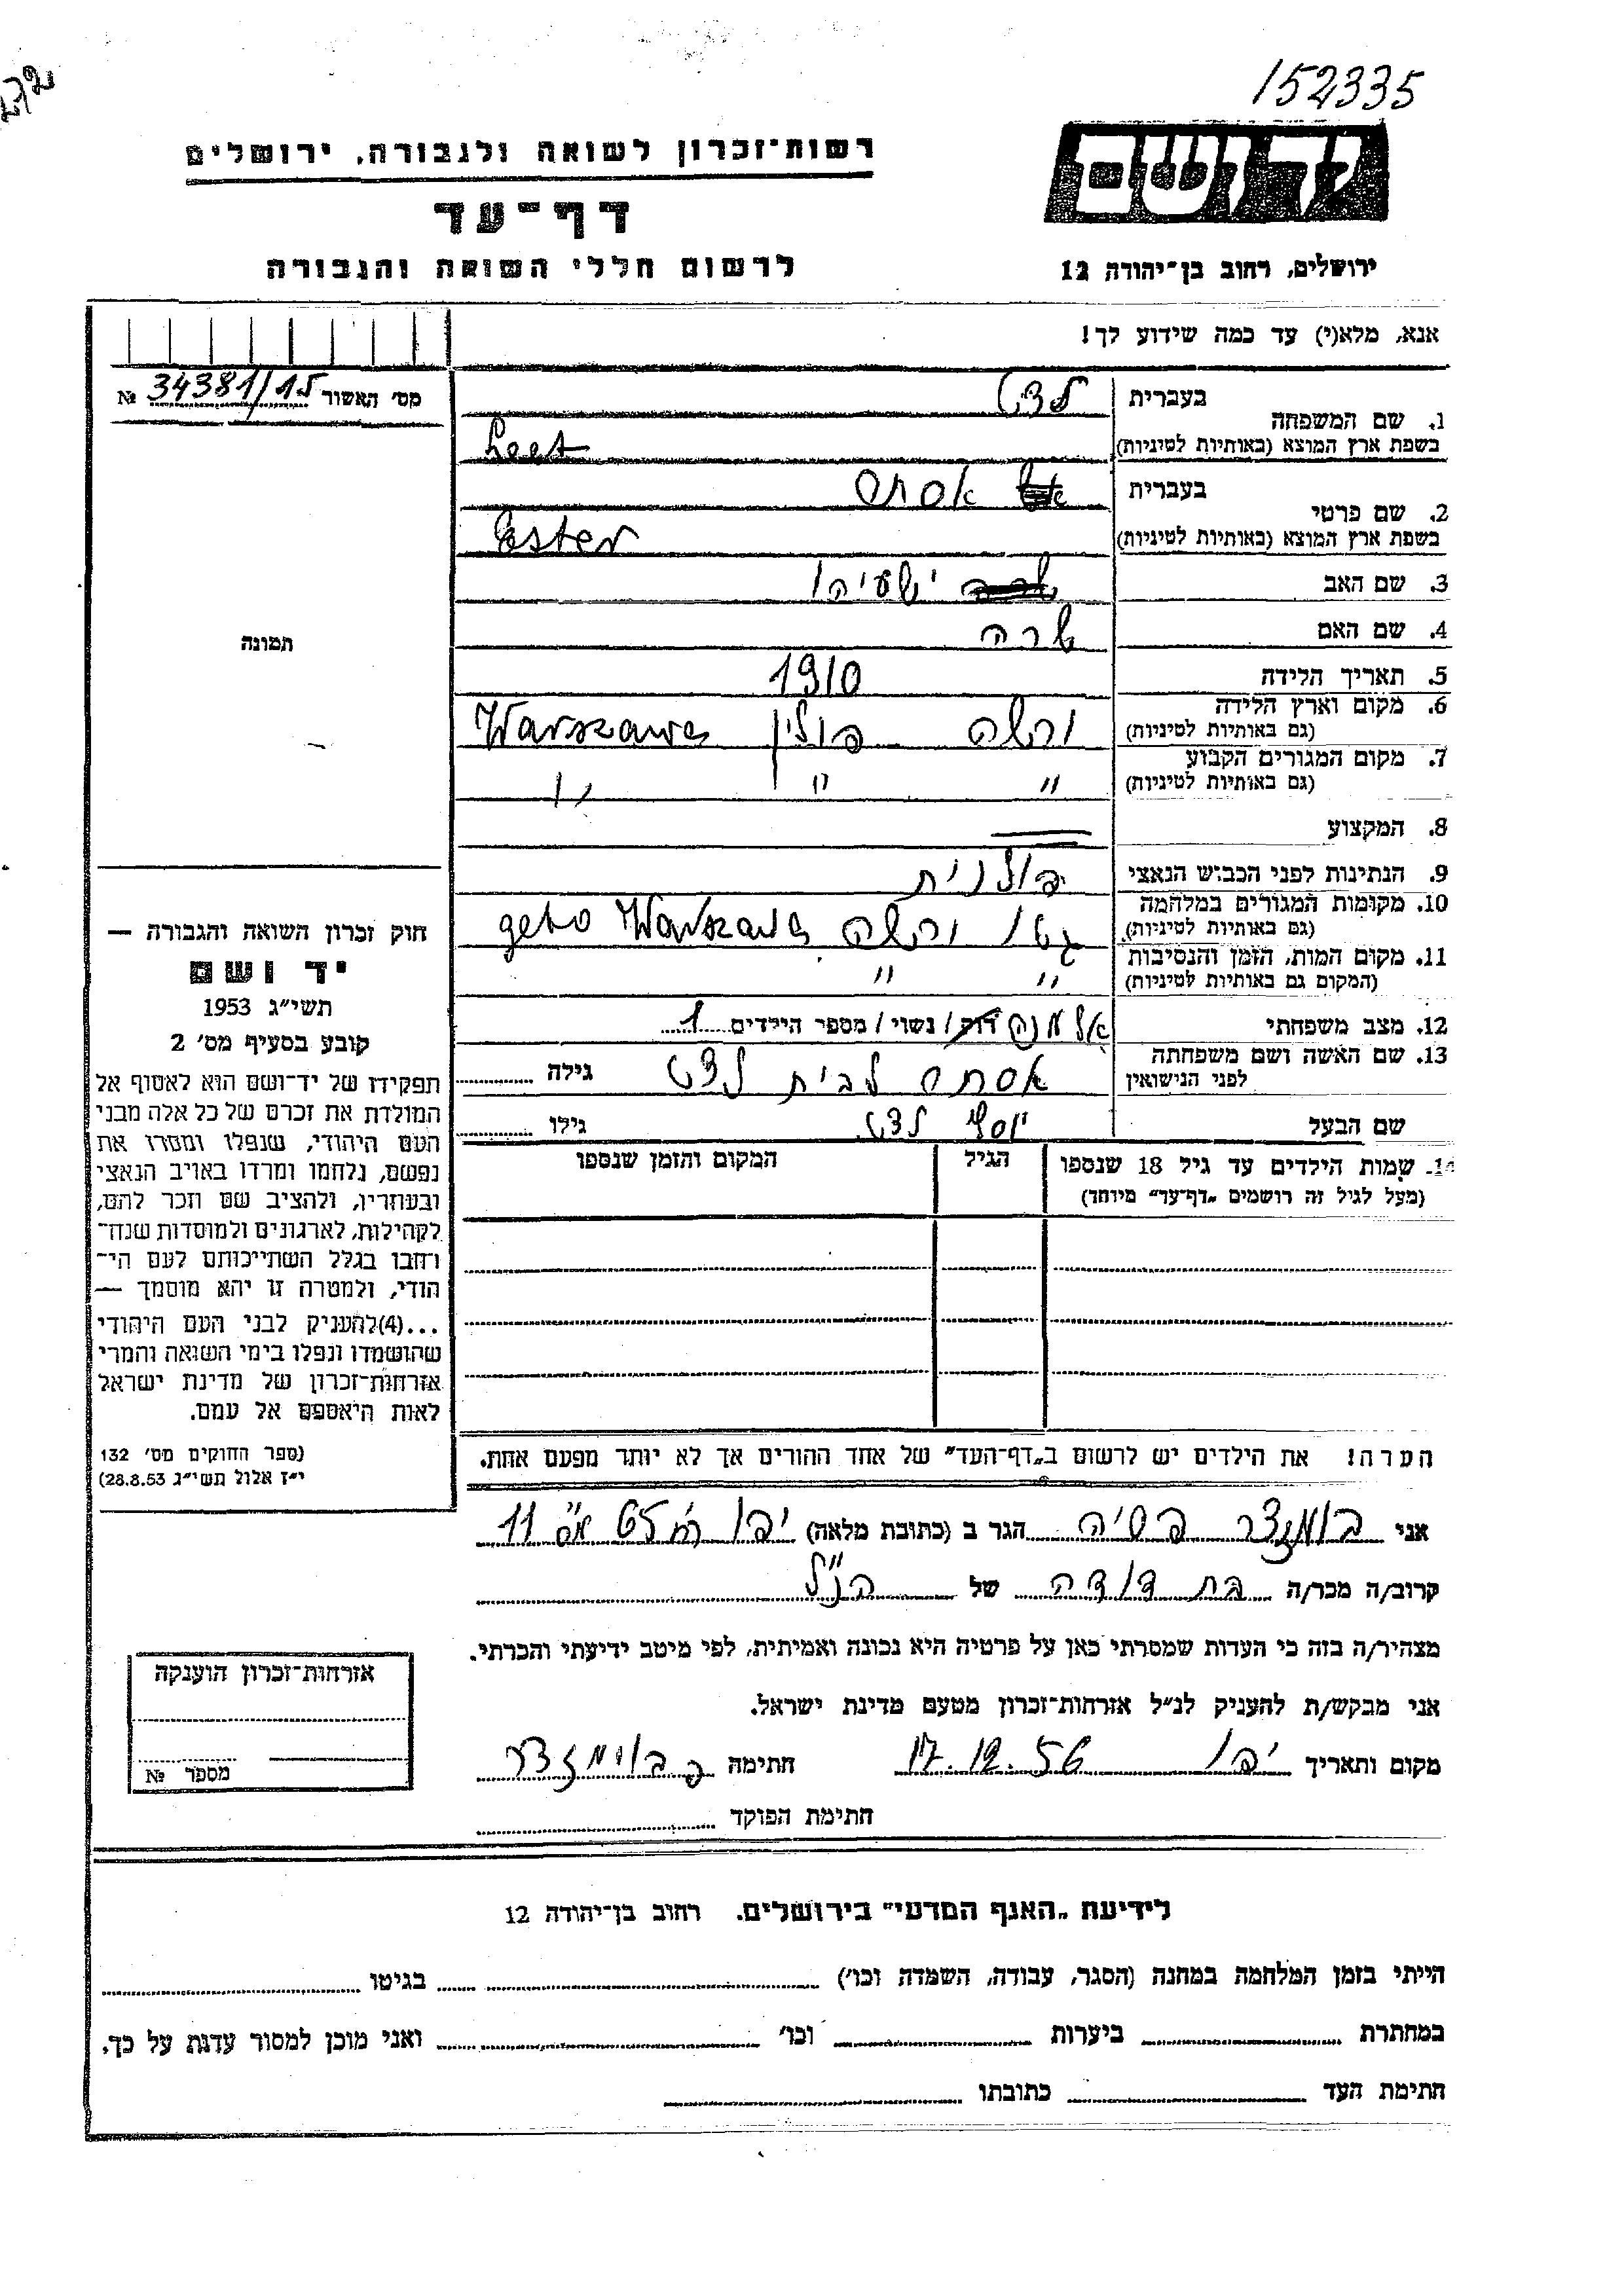 152335
רשות־זכרון לשואה ולגבורה, ירושלים
יד ושם
דף־עד
לרשום חללי השואה והגבורה
ירושלים, רחוב בן־יהודה 12
אנא, מלא(י) עד כמה שידוע לך!
מס׳ האשור № 34381/15
1. שם המשפחה
בעברית
בשפת ארץ המוצא (באותיות לטיניות)
2. שם פרטי
בעברית אסתר
בשפת ארץ המוצא (באותיות לטיניות) Ester
3. שם האב ישעיהו
4. שם האם שרה
5. תאריך הלידה 1910
6. מקום וארץ הלידה ורשה פולין Warszawa
(גם באותיות לטיניות)
7. מקום המגורים הקבוע
(גם באותיות לטיניות) " " "
8. המקצוע —
9. הנתינות לפני הכבוש הנאצי פולנית
10. מקומות המגורים במלחמה גטו ורשה geto Warszawa
(גם באותיות לטיניות)
11. מקום המות, הזמן והנסיבות
(המקום גם באותיות לטיניות) " "
12. מצב משפחתי אלמנה רוק / נשוי / מספר הילדים 1
13. שם האשה ושם משפחתה
לפני הנישואין אסתר לבית גילה
שם הבעל יוסף גילו
14. שמות הילדים עד גיל 18 שנספו
(מעל לגיל זה רושמים „דף־עד״ מיוחד)
הגיל
המקום והזמן שנספו
הערה! את הילדים יש לרשום ב„דף־העד״ של אחד ההורים אך לא יותר מפעם אחת.
תמונה
חוק זכרון השואה והגבורה —
יד ושם
תשי״ג 1953
קובע בסעיף מס׳ 2
תפקידו של יד־ושם הוא לאסוף אל
המולדת את זכרם של כל אלה מבני
העם היהודי, שנפלו ומסרו את
נפשם, נלחמו ומרדו באויב הנאצי
ובעוזריו, ולהציב שם וזכר להם,
לקהילות, לארגונים ולמוסדות שנח־
רחבו בגלל השתייכותם לעם הי־
הודי, ולמטרה זו יהא מוסמך —
...(4)להעניק לבני העם היהודי
שהושמדו ונפלו בימי השואה והמרי
אזרחות־זכרון של מדינת ישראל
לאות היאספם אל עמם.
(ספר החוקים מס׳ 132
י״ז אלול תשי״ג 28.8.53)
אני הגר ב (כתובת מלאה) יפו 11
קרוב/ה מכר/ה בת דודה של הנ״ל
מצהיר/ה בזה כי העדות שמסרתי כאן על פרטיה היא נכונה ואמיתית, לפי מיטב ידיעתי והכרתי.
אני מבקש/ת להעניק לנ״ל אזרחות־זכרון מטעם מדינת ישראל.
מקום ותאריך יפו 17.12.56 חתימה
חתימת הפוקד
אזרחות־זכרון הוענקה
מספר №
לידיעת „האגף המדעי״ בירושלים. רחוב בן־יהודה 12
הייתי בזמן המלחמה במחנה (הסגר, עבודה, השמדה וכו׳) בגיטו
במחתרת ביערות וכו׳ ואני מוכן למסור עדות על כך.
חתימת העד כתובתו